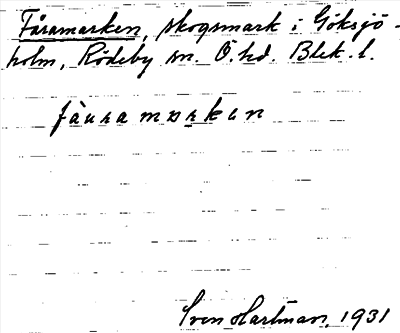 Fåramarken, skogsmark i Göksjö-
holm, Rödeby sn. Ö. hd. Blek. l.
fåuramarkan
Sven Hartman, 1931